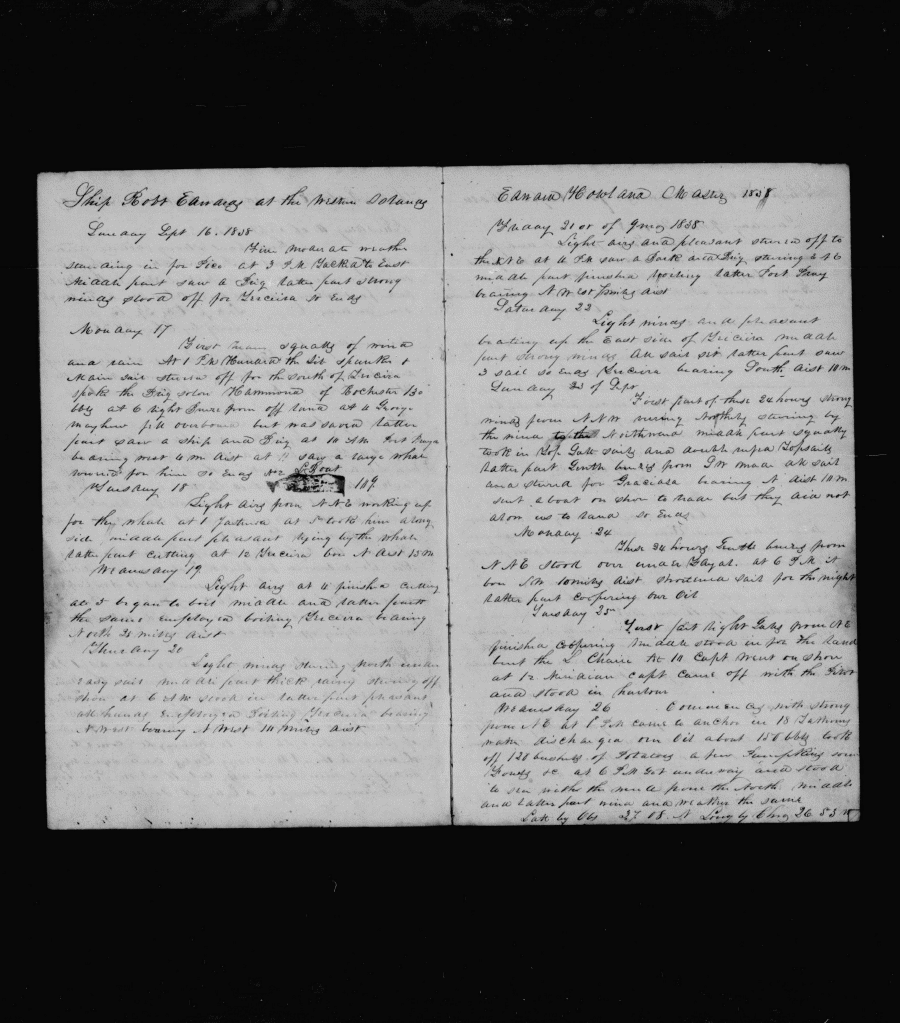 Ship Robt Edwards at the Western Islands
Sunday Sept 16. 1838
Fine moderate weather
standing in for Pico at 3 P.M Tackd to East
Middle part saw a Brig latter part strong
winds stood off for Treceira so Ends
Monday 17
First squalls of wind
and rain At 1 P.M the Gib spanker &
Main sail sterin off for the south of Treceira
spoke the Brig Solon Hammond of Rochester 130
bbls at 6 tight off land at 4 George
mayhew fell overboard but was saved latter
part saw a ship and Brig at 10 AM
bearing west 4 m Dist at 11 saw a large whale
lowerd for him so Ends
Tuesday 18
Light airs from N N E working up
for they whale at 1 fastend at 5 took him along
side middle part pleasant lying by the whale
latter part cutting at 12 Treceira bore N Dist 15 m
Wednesday 19
Light airs at 4 finishd cutting
at 5 began to boil middle and latter part
the same Employed boiling Treceira bearing
North 25 miles Dist
Thursday 20
Light winds stering North under
easy sail middle part thick rainy stering off
shore at 6 AM stood in latter part pleasant
all hands Employed Boiling Treceira bearing
N West bearing N West 14 miles Dist
Edward Howland Master 1838
Friday 21 st of 1838
Light airs and pleasant sterd off to
the N E at 4 P.M saw a Bark and Brig stering
middle part finishd boiling latter Port Pray
bearing N W Dist
Saturday 22
Light winds and pleasant
beating up the East side of Treceira middle
part strong winds All sail set latter part saw
3 sail so Ends Treceira bearing South Dist 10 m
Sunday 23 of Sept
First part of these 24 hours strong
winds from N N W stering by
the wind to the Northward middle part squally
took in Top Gall sails and double reefed Topsails
latter part Gentle breezes from S W made all sail
and sterd for Graciosa bearing N Dist 10 m
sent a boat on shore to trade but they did not
alow us to land so Ends
Monday 24
These 24 hours Gentle breezes from
N N E stood over under Fayal. at 6 P.M it
bore S W 10 miles Dist shortend sail for the night
latter part coopering our Oil
Tuesday 25
First part light Gales from N E
finishd coopering middle stood in for the land
bent the L Chain At 10 Capt went on shore
at 12 Meridian Capt came off with the Pilot
and stood in harbour
Wednesday 26 Commences with strong
from N E at 1 P.M came to anchor in 18 Fathoms
water dischargd our Oil about 150 bbls took
off 120 bushels of Potatoes a few Pumpkins some
Fowls &c at 6 P.M Got underway and stood
to sea with the wind from the North middle
and latter part wind and weather the same
Latt by Obs 37 08 N Long by Chro 26 53 W